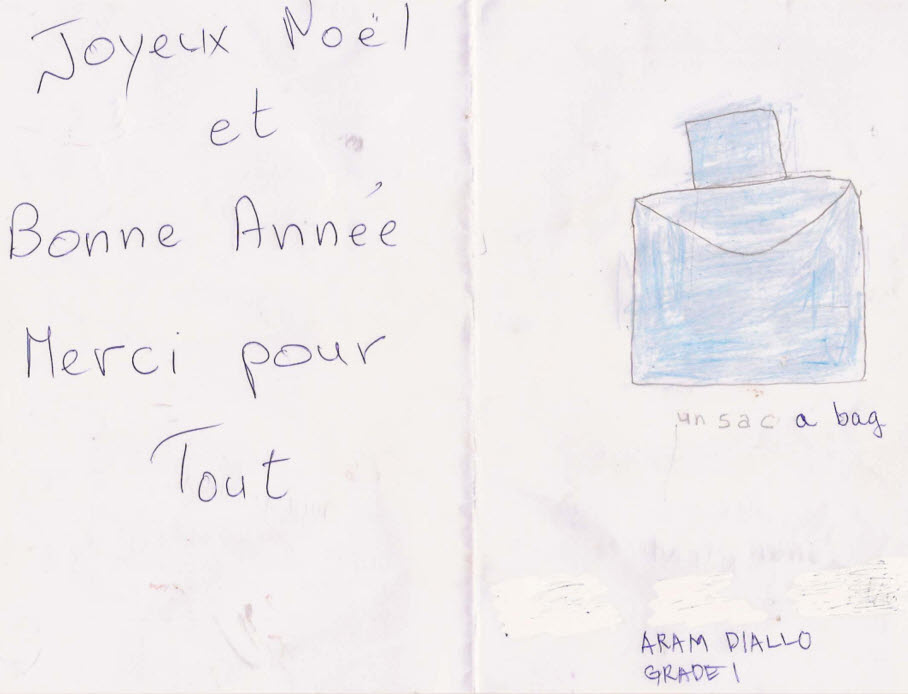 Joyeux Noël
et
Bonne Année
Merci pour
Tout
un sac a bag
ARAM DIALLO
GRADE 1